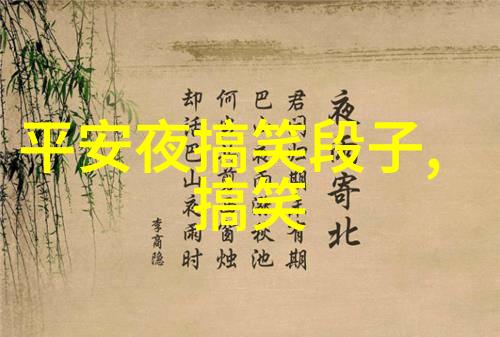 平安夜搞笑段子,
搞笑
夜雨寄北
君问归期未有期
巴山夜雨涨秋池
何当剪西窗烛
却话巴山夜雨时
李商隐